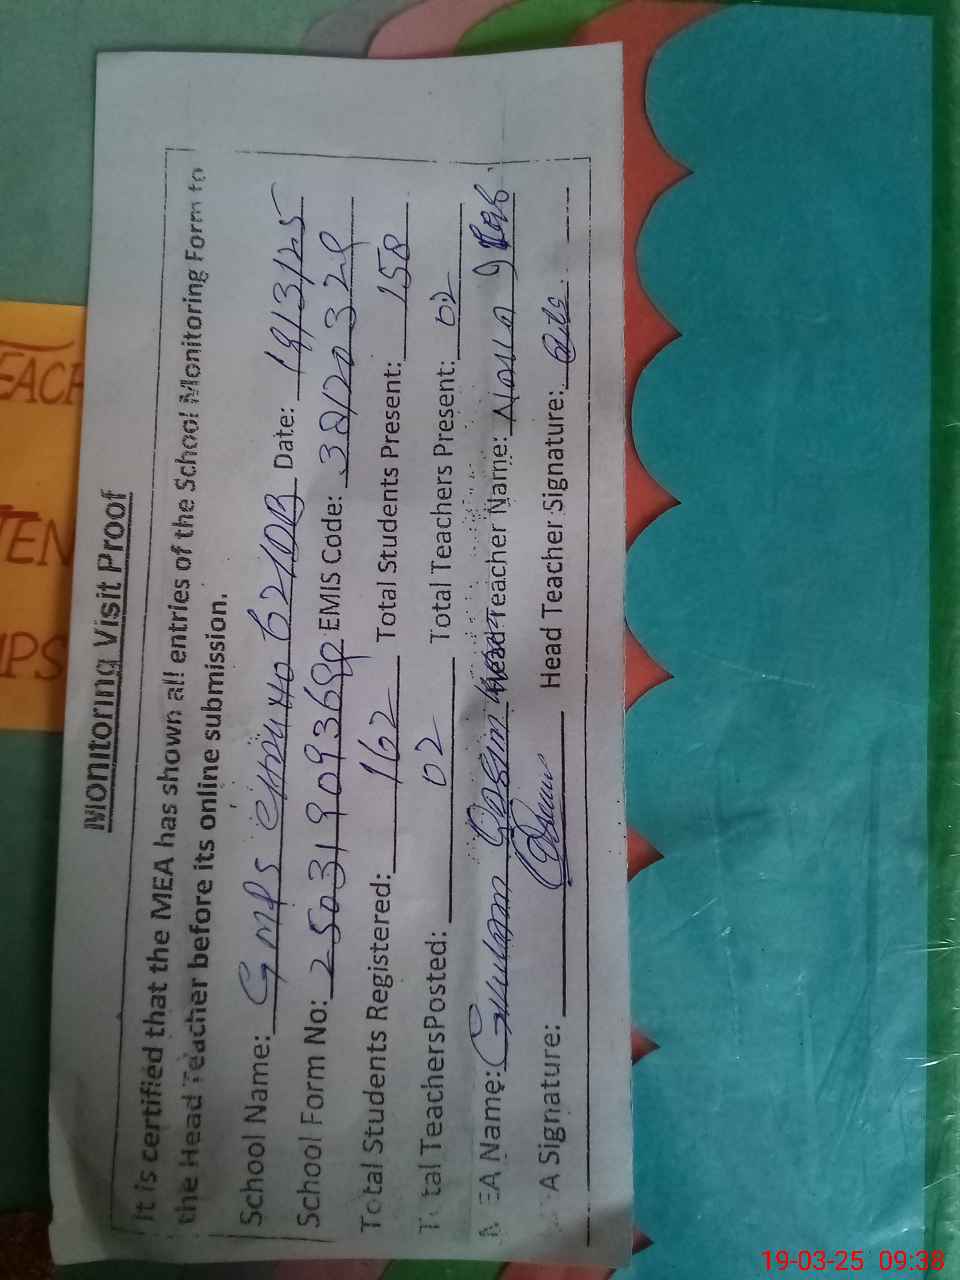 Monitoring Visit Proof
It is certified that the MEA has shown all entries of the School Monitoring Form to
the Head Teacher before its online submission.
School Name: GMPS 62/DB Date: 19/3/25
School Form No: EMIS Code: 
Total Students Registered: 162 Total Students Present: 158
Total TeachersPosted: 02 Total Teachers Present: 02
MEA Name: Ghulam Qasim Head Teacher Name:
A Signature: Head Teacher Signature:
EACH
TEN
IPS
19-03-25 09:38